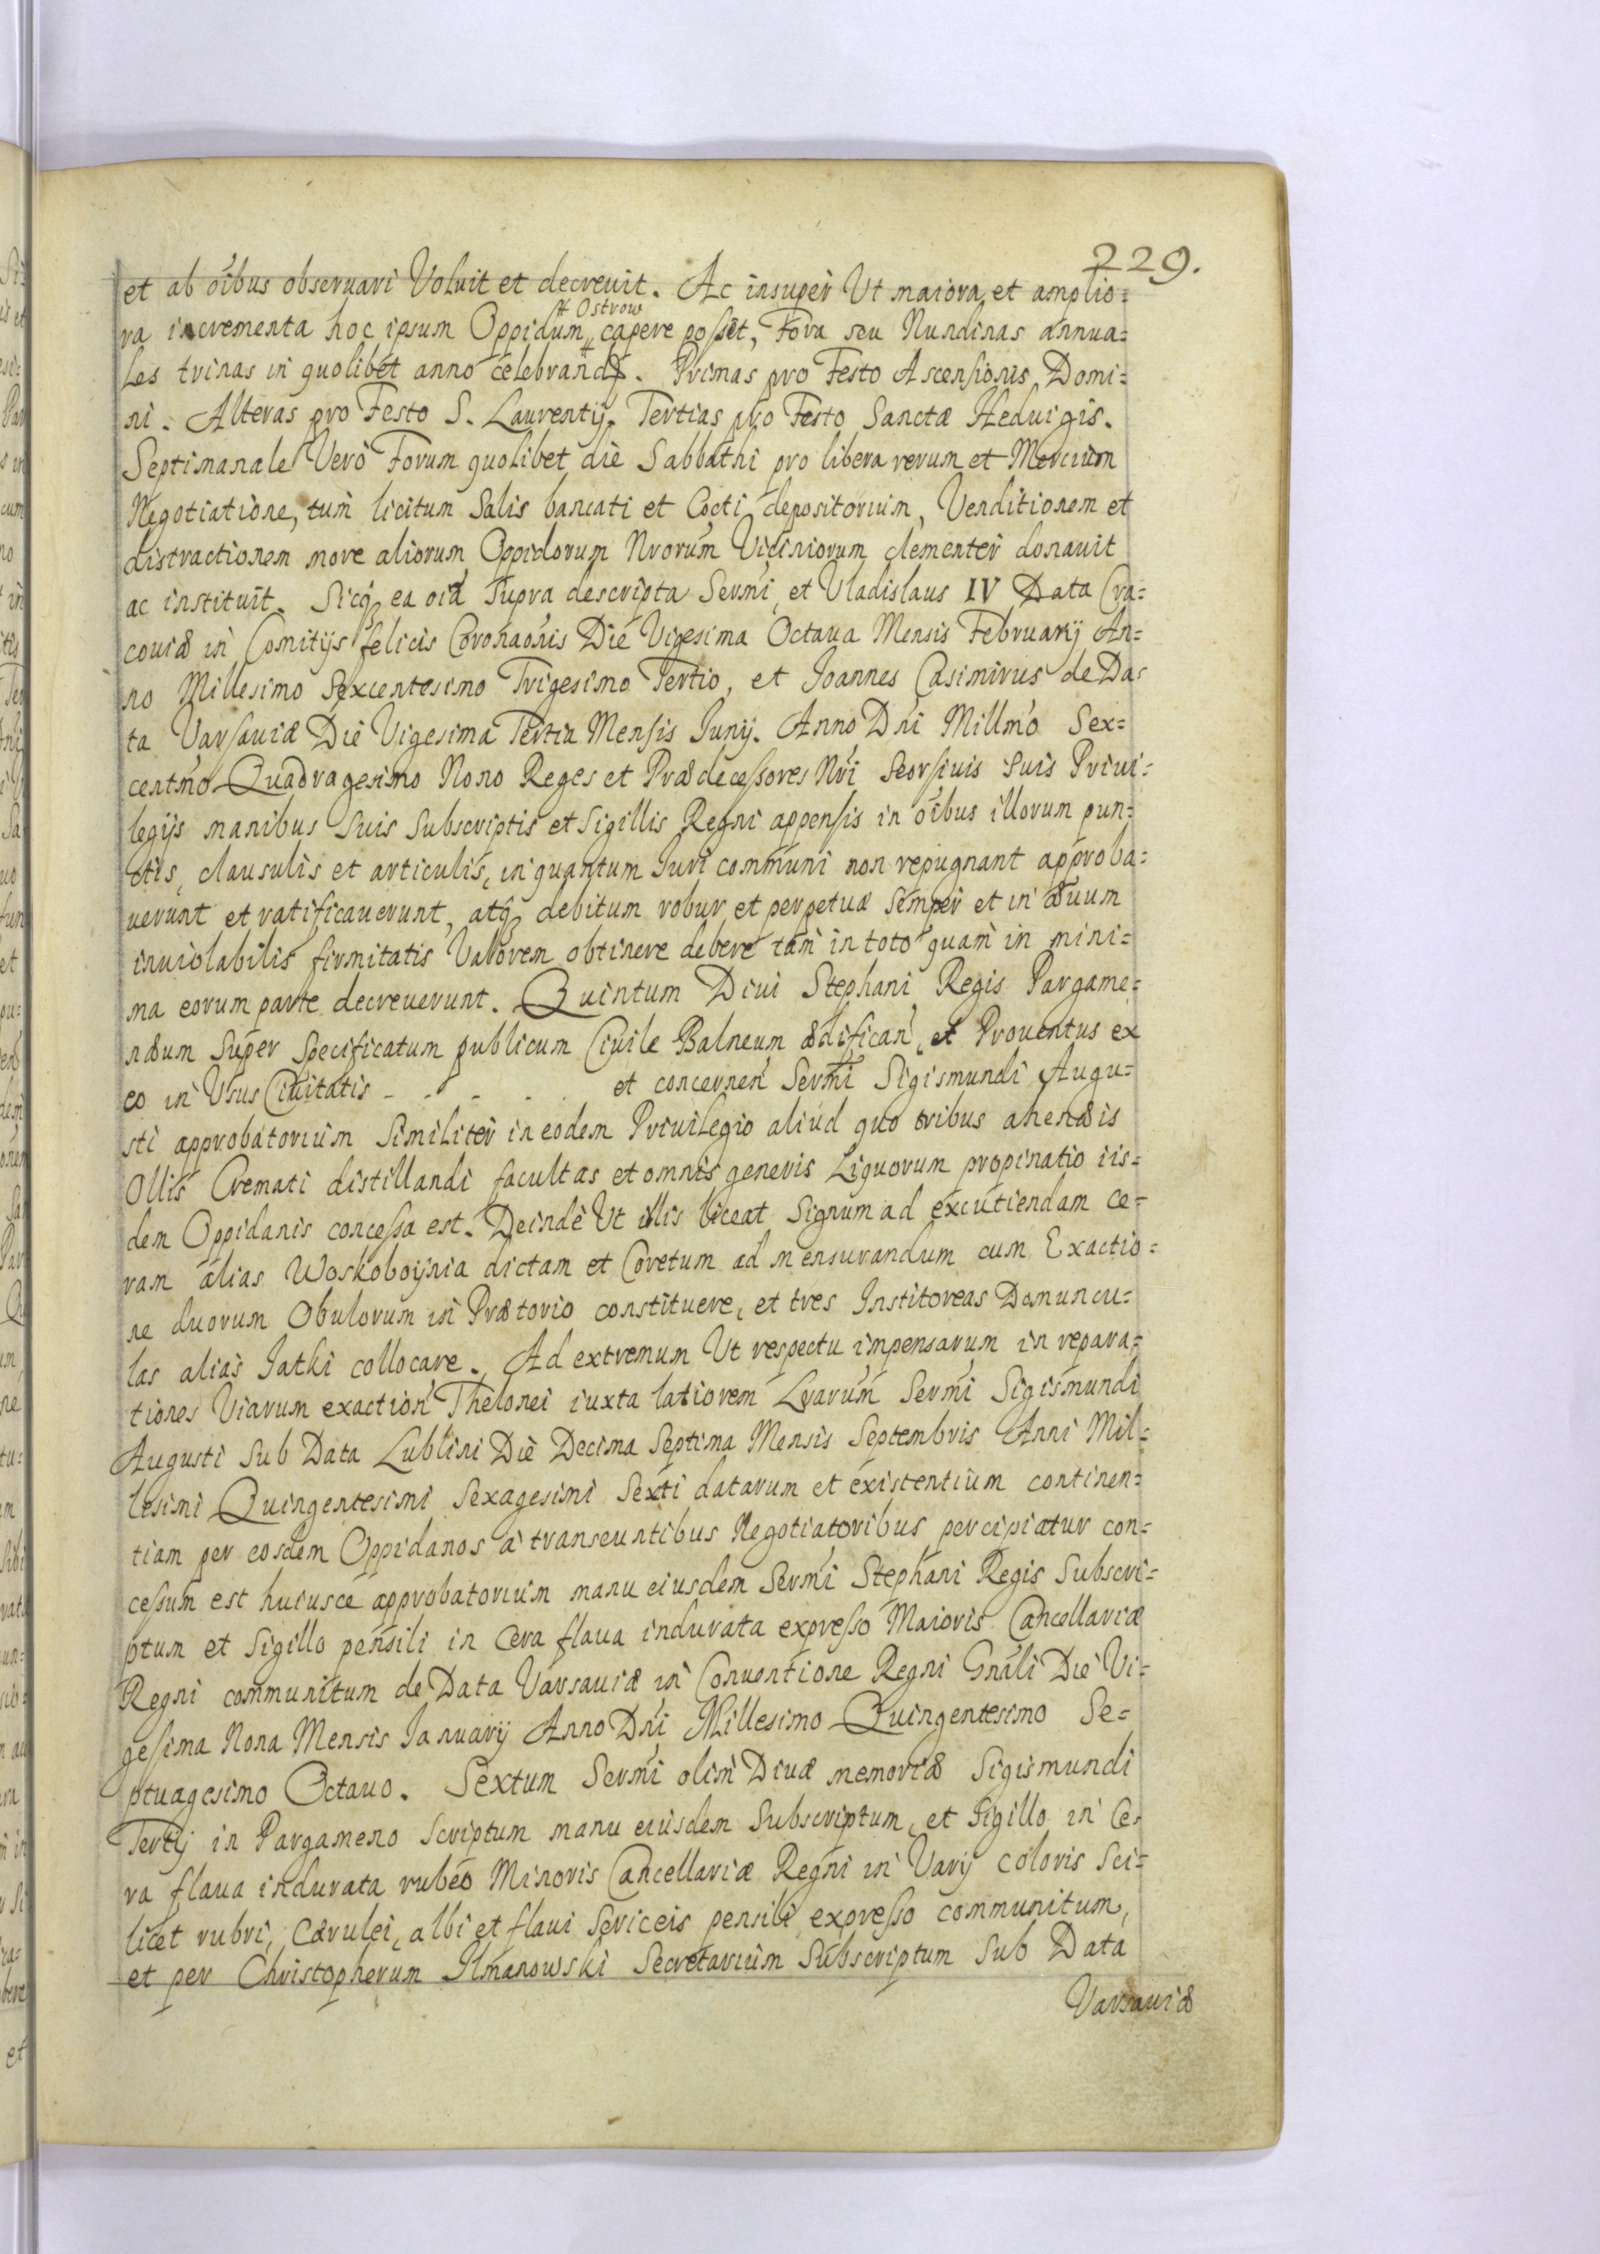 229.
et ab oĩbus observari Voluit et decrevit. Ac insuper Ut maiora et amplio=
# Ostrow
ra incrementa hoc ipsum Oppidum # capere posset, Fora seu Nundinas annua=
les trinas in quolibet anno celebrand. Primas pro Festo Ascensionis Domi=
ni. Alteras pro Festo S. Laurentÿ. Tertias pro Festo Sanctæ Heduigis.
Septimanale Verò Forum quolibet die Sabbathi pro libera rerum et Mercium
Negotiatione, tum licitum Salis bancati et Cocti depositorium, Venditionem et
distractionem more aliorum Oppidorum Nrorum Viciniorum clementer donauit
ac instituit. Sicq ea oia Supra descripta Sermi et Vladislaus IV Data Cra=
couiæ in Comitÿs felicis Coronaonis Die Vigesima Octaua Mensis Februarÿ An=
no Millesimo Sexcentesimo Trigesimo Tertio, et Joannes Casimirus de Da=
ta Varsauiæ Die Vigesima Tertia Mensis Junÿ. Anno Dni Millmo Sex=
centmo Quadragesimo Nono Reges et Prædecessores Nri Seorsiuis Suis Priui=
legÿs manibus Suis Subscriptis et Sigillis Regni appensis in oibus illorum pun=
ctis, clausulis et articulis, in quantum Juri communi non repugnant approba=
uerunt et ratificauerunt, atq debitum robur et perpetuæ Semper et in æuum
inuiolabilis firmitatis Valorem obtinere debere tam in toto quam in mini=
ma eorum parte decreuerunt. Quintum Diui Stephani Regis Pargame=
næum Super Specificatum publicum Ciuile Balneum ædifican et Prouentus ex
eo in Usus Ciuitatis - - - - - et concernen Sermi Sigismundi Augu=
sti approbatorium Similiter in eodem Priuilegio aliud quo tribus ahenæis
Ollis Cremati distillandi facultas et omnis generis Liquorum propinatio iis=
dem Oppidanis concessa est. Deinde Ut illis liceat Signum ad excutiendam Ce=
ram alias Woskoboynia dictam et Coretum ad mensurandum cum Exactio=
ne duorum Obulorum in Prætorio constituere, et tres Institoreas Domuncu=
las alias Jatki collocare. Ad extremum Ut respectu impensarum in repara=
tiones Viarum exaction Thelonei iuxta latiorem Lrarum Sermi Sigismundi
Augusti Sub Data Lublini Die Decima Septima Mensis Septembris Anni Mil=
lesimi Quingentesimi Sexagesimi Sexti datarum et existentium continen=
tiam per eosdem Oppidanos a transeuntibus Negotiatoribus percipiatur con=
cessum est huiusce approbatorium manu eiusdem Sermi Stephani Regis Subscri=
ptum et Sigillo pensili in Cera flaua indurata expresso Maioris Cancellariæ
Regni communitum de Data Varsauiæ in Conuentione Regni Gnali Die Vi=
gesima Nona Mensis Januarÿ Anno Dni Millesimo Quingentesimo Se=
ptuagesimo Octauo. Sextum Sermi olim Diuæ memoriæ Sigismundi
Tertÿ in Pargameno Scriptum manu eiusdem Subscriptum, et Sigillo in Ce=
ra flaua indurata rubeo Minoris Cancellariæ Regni in Varÿ coloris Sci=
licet rubri, Cærulei, albi et flaui Sericeis pensili expresso communitum,
et per Christopherum Ilmanowski Secretarium Subscriptum Sub Data
Varsauiæ